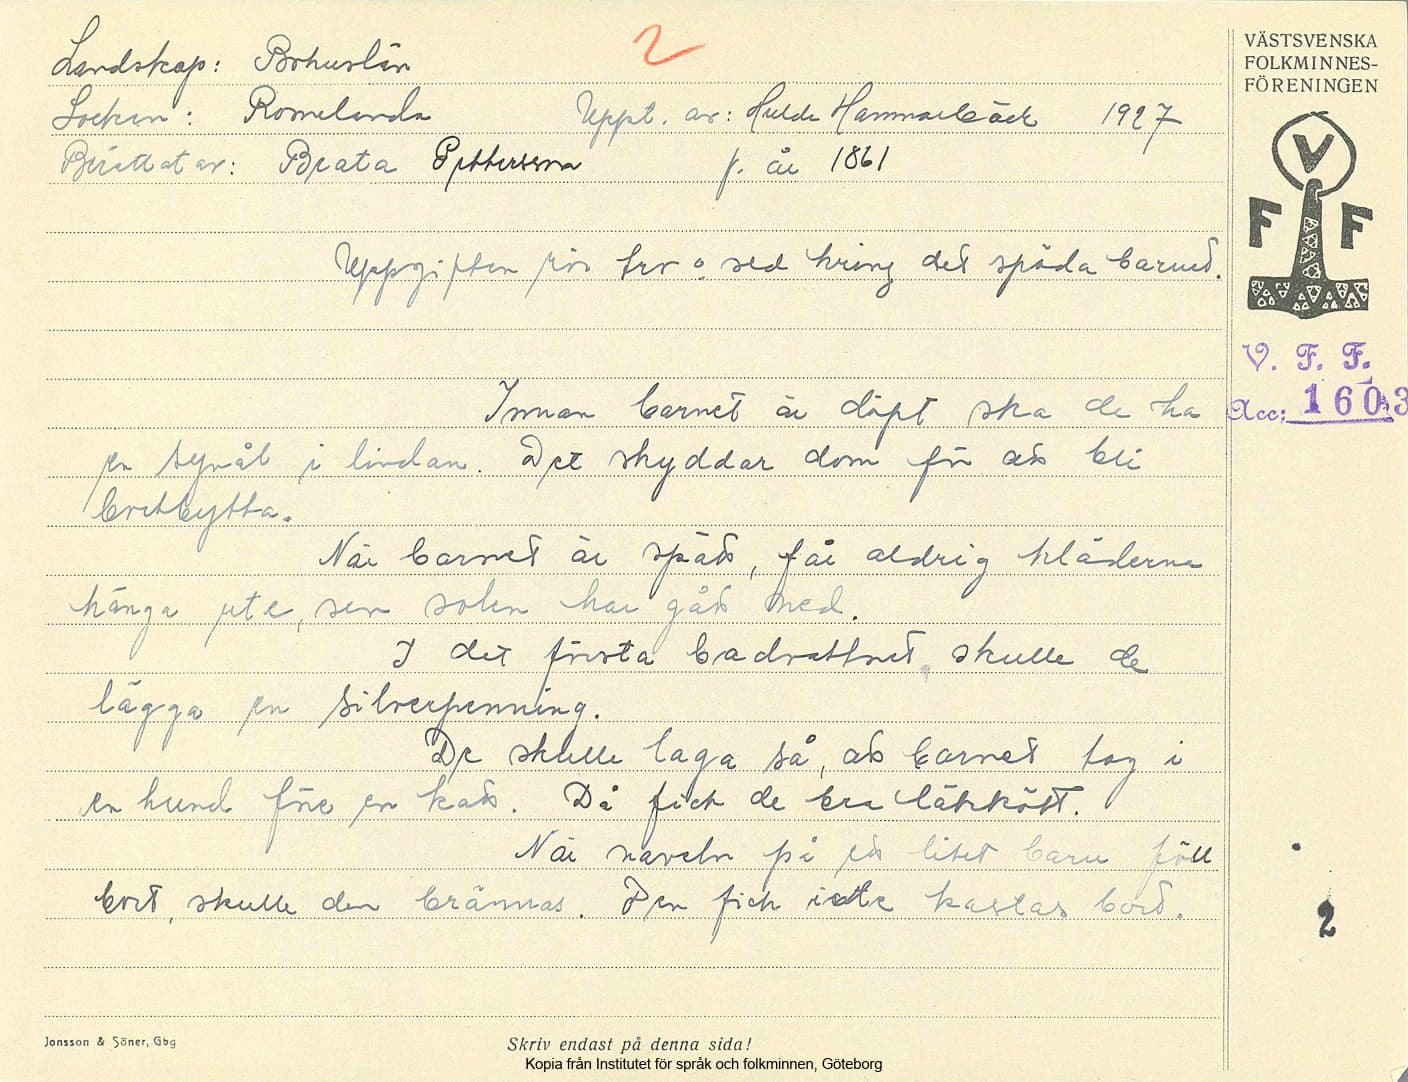 2
Landskap: Bohuslän
Socken: Romelanda Uppt. av: Hulda Hammarbäck 1927
Berättat av: Beata Pettersson f. år 1861
Uppgiften rör tro o. sed kring det späda barnet.
Innan barnet är döpt ska de ha
en synål i lindan. Det skyddar dom för att bli
bortbytta.
När barnet är spätt, får aldrig kläderna
hänga ute, sen solen har gått ned.
I det första badvattnet skulle de
lägga en silverpenning.
De skulle laga så, att barnet tog i
en hund före en katt. Då fick de bra läkkött.
När naveln på ett litet barn föll
bort, skulle den brännas. Den fick inte kastas bort.
VÄSTSVENSKA
FOLKMINNES-
FÖRENINGEN
V
F F
V. F. F.
Acc: 1603
2
Jonsson & Söner, Gbg
Skriv endast på denna sida!
Kopia från Institutet för språk och folkminnen, Göteborg